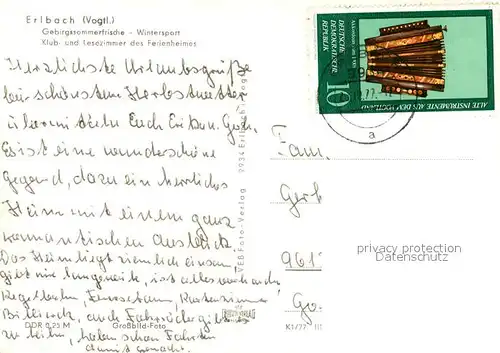 Erlbach (Vogtl.)
Gebirgssommerfrische – Wintersport
Klub- und Lesezimmer des Ferienheimes
Herzlichste Urlaubsgrüße
bei schönstem Herbstwetter
übermitteln Euch Erika u.
Es ist eine wunderschöne
Gegend, dazu ein herrliches
Heim mit einem ganz
romantischen Ausblick.
Das Heim liegt ziemlich einsam,
gibt nie langeweile, ist alles vorhanden
Kegelbahn, Fernsehen,
Billard, auch Fahrräder gibt es
zu leihen, haben schon Fahrten
damit gemacht.
DDR 0,25 M Großbild-Foto
VEB Foto-Verlag 9934 Erlbach
K1/77 III
ALTE INSTRUMENTE AUS DEM VOGTLAND
Akkordeon, um 1900
DEUTSCHE
DEMOKRATISCHE
REPUBLIK
10
a
Fam.
Gerh
961
Go.
privacy protection
Datenschutz